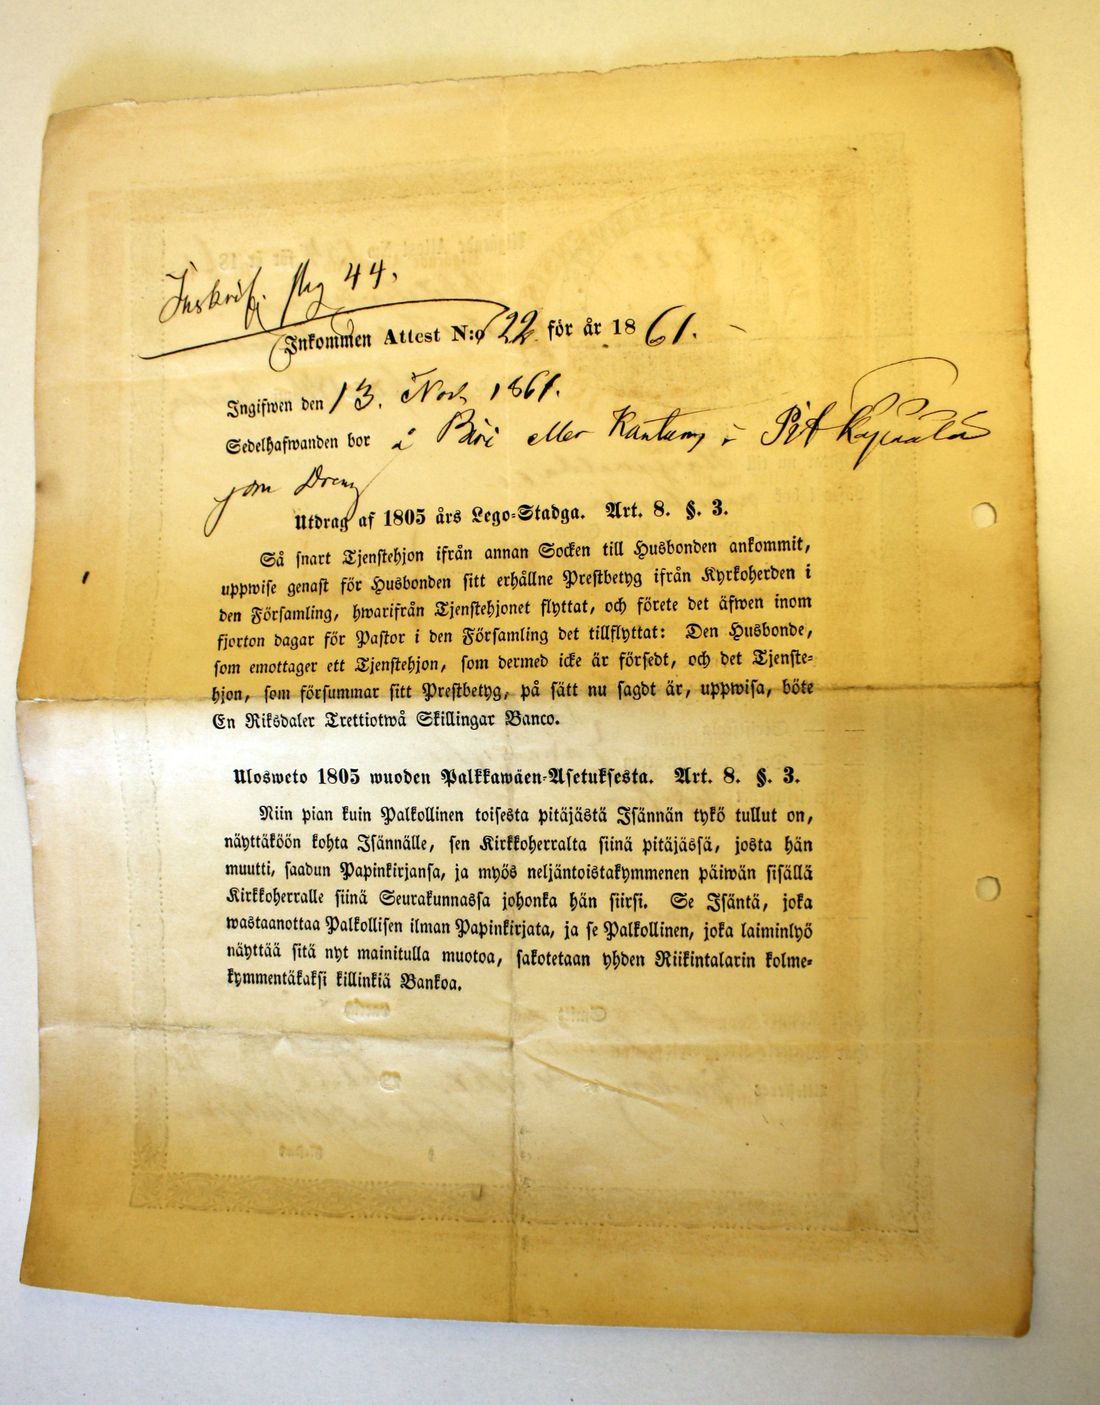 Inskrif. pag 44.
Inkommen Attest N:o 22 för år 1861.
Ingifwen den 13. Nov. 1861.
Sedelhafwanden bor å eller i
som Dreng
Utdrag af 1805 års Lego-Stadga. Art. 8. §. 3.
Så snart Tjenstehjon ifrån annan Socken till Husbonden ankommit,
uppwise genast för Husbonden sitt erhållne Prestbetyg ifrån Kyrkoherden i
den Församling, hwarifrån Tjenstehjonet flyttat, och förete det äfwen inom
fjorton dagar för Pastor i den Församling det tillflyttat: Den Husbonde,
som emottager ett Tjenstehjon, som dermed icke är försedt, och det Tjenste-
hjon, som försummar sitt Prestbetyg, på sätt nu sagdt är, uppwisa, böte
En Riksdaler Trettiotwå Skillingar Banco.
Ulosweto 1805 wuoden Palkkawäen-Asetuksesta. Art. 8. §. 3.
Niin pian kuin Palkollinen toisesta pitäjästä Isännän tykö tullut on,
näyttäköön kohta Isännälle, sen Kirkkoherralta siinä pitäjässä, josta hän
muutti, saadun Papinkirjansa, ja myös neljäntoistakymmenen päiwän sisällä
Kirkkoherralle siinä Seurakunnassa johonka hän siirsi. Se Isäntä, joka
wastaanottaa Palkollisen ilman Papinkirjata, ja se Palkollinen, joka laiminlyö
näyttää sitä nyt mainitulla muotoa, sakotetaan yhden Riikintalarin kolme-
kymmentäkaksi killinkiä Bankoa.